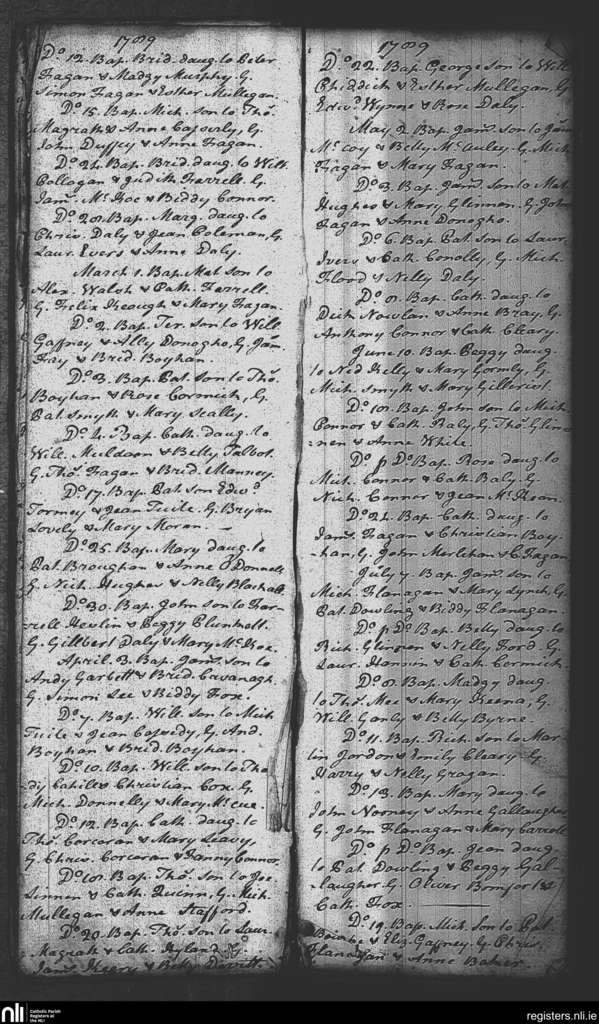 1789
Do. 12. Bap. Brid. daug. to Peter
Fagan & Madgy Murphy. G.
Simon Fagan & Esther Mullegan.
Do. 15. Bap. Mich. son to Tho.
Magrath & Anne Casserly, G.
John Duffey & Anne Fagan.
Do. 24. Bap. Brid. daug. to Will.
Collogan & Judith Farrell. G.
Jam. McKoe & Biddy Connor.
Do. 28. Bap. Marg. daug. to
Chris. Daly & Jean Coleman, G.
Laur. Evers & Anne Daly.
March 1. Bap. Mat son to
Alex. Walsh & Cath. Farrell.
G. Felix Keough & Mary Fagan.
Do. 2. Bap. Ter. son to Will.
Gaffney & Ally Donogho, G. Jam.
Fay & Brid. Boyhan.
Do. 3. Bap. Pat. son to Tho.
Boyhan & Rose Cormick, G.
Pat. Smyth & Mary Scally.
Do. 4. Bap. Cath. daug. to
Will. Muldoon & Betty Talbot.
G. Tho. Fagan & Brid. Manney.
Do. 17. Bap. Pat son Edwd.
Tormey & Jean Tuite. G. Bryan
Lovely & Mary Moran.
Do. 25. Bap. Mary daug. to
Pat. Broughan & Anne O'Donnell
G. Nich. Hughes & Nelly Blackall.
Do. 30. Bap. John son to Far-
-rell Hevlin & Peggy Plunkett.
G. Gillbert Daly & Mary McKoe.
April. 3. Bap. Jam. son to
Andy Garbett & Brid. Cavanagh.
G. Simon Lee & Biddy Fox.
Do. 7. Bap. Will. son to Mich
Tuite & Jean Cassedy, G. And.
Boyhan & Brid. Boyhan.
Do. 10. Bap. Will. son to Tha-
-dy Cahill & Christian Cox. G.
Mich. Donnelly & Mary McCue.
Do. 12. Bap. Cath. daug. to
Tho. Corcoran & Mary Leavy,
G. Chris. Corcoran & Fanny Connor.
Do. 18. Bap. Tho. son to Joe
Linnen & Cath. Quinn, G. Mich.
Mullegan & Anne Stafford.
Do. 20. Bap. Tho. son to Laur.
Magrath & Cath. Hyland, G.
Jam. Keary & Betty
1789
Do. 22. Bap. George son to Will
Chiddick & Esther Mullegan, G
Edwd. Wynne & Rose Daly.
May 2. Bap. Jam. son to Jam
McCoy & Betty McAuley. G. Mich
Fagan & Mary Fagan.
Do. 3. Bap. Jam. son to Mat
Hughes & Mary Glennen. G. John
Fagan & Anne Donogho.
Do. 6. Bap. Pat. son to Laur.
Ivers & Cath Conolly, G. Mich.
Flood & Nelly Daly.
Do. 8. Bap. Cath. daug. to
Dick Nowlan & Anne Bray, G.
Anthony Connor & Cath. Cleary.
June 10. Bap. Peggy daug.
to Ned Kelly & Mary Gormly, G.
Mich. Smyth & Mary
Do. 18. Bap. John son to Mich.
Connor & Cath. Baly, G. Tho. Glin-
-nen & Anne White.
Do. p Do. Bap. Rose daug. to
Mich. Connor & Cath. Baly. G.
Nich. Connor & Jean McKean.
Do. 24. Bap. Cath. daug. to
Jam. Fagan & Christian Boy-
-han, G. John Merlehan & C. Fagan.
July 7. Bap. Jam. son to
Mich. Flanagan & Mary Lynch, G.
Pat. Dowling & Biddy Flanagan.
Do. p Do. Bap. Betty daug. to
Rich. Glinnen & Nelly Ford. G.
Laur. Hannin & Cath. Cormick.
Do. 8. Bap. Madgy daug.
to Tho. Mee & Mary Keena, G.
Will. Ganly & Betty Byrne.
Do. 11. Bap. Rich. son to Mar-
-tin Jordon & Emily Cleary. G.
Harry & Nelly Gragan.
Do. 13. Bap. Mary daug. to
John Norney & Anne Gallaugher
G. John Flanagan & Mary Carroll
Do. p Do. Bap. Jean daug.
to Pat. Dowling & Peggy Gal-
-laugher, G. Oliver Bomford &
Cath. Fox.
Do. 19. Bap. Mich. son to Pat.
& Eliz. Gaffney, G. Chris.
Flanagan & Anne Baker.
nli
Catholic Parish
Registers at
the NLI
registers.nli.ie